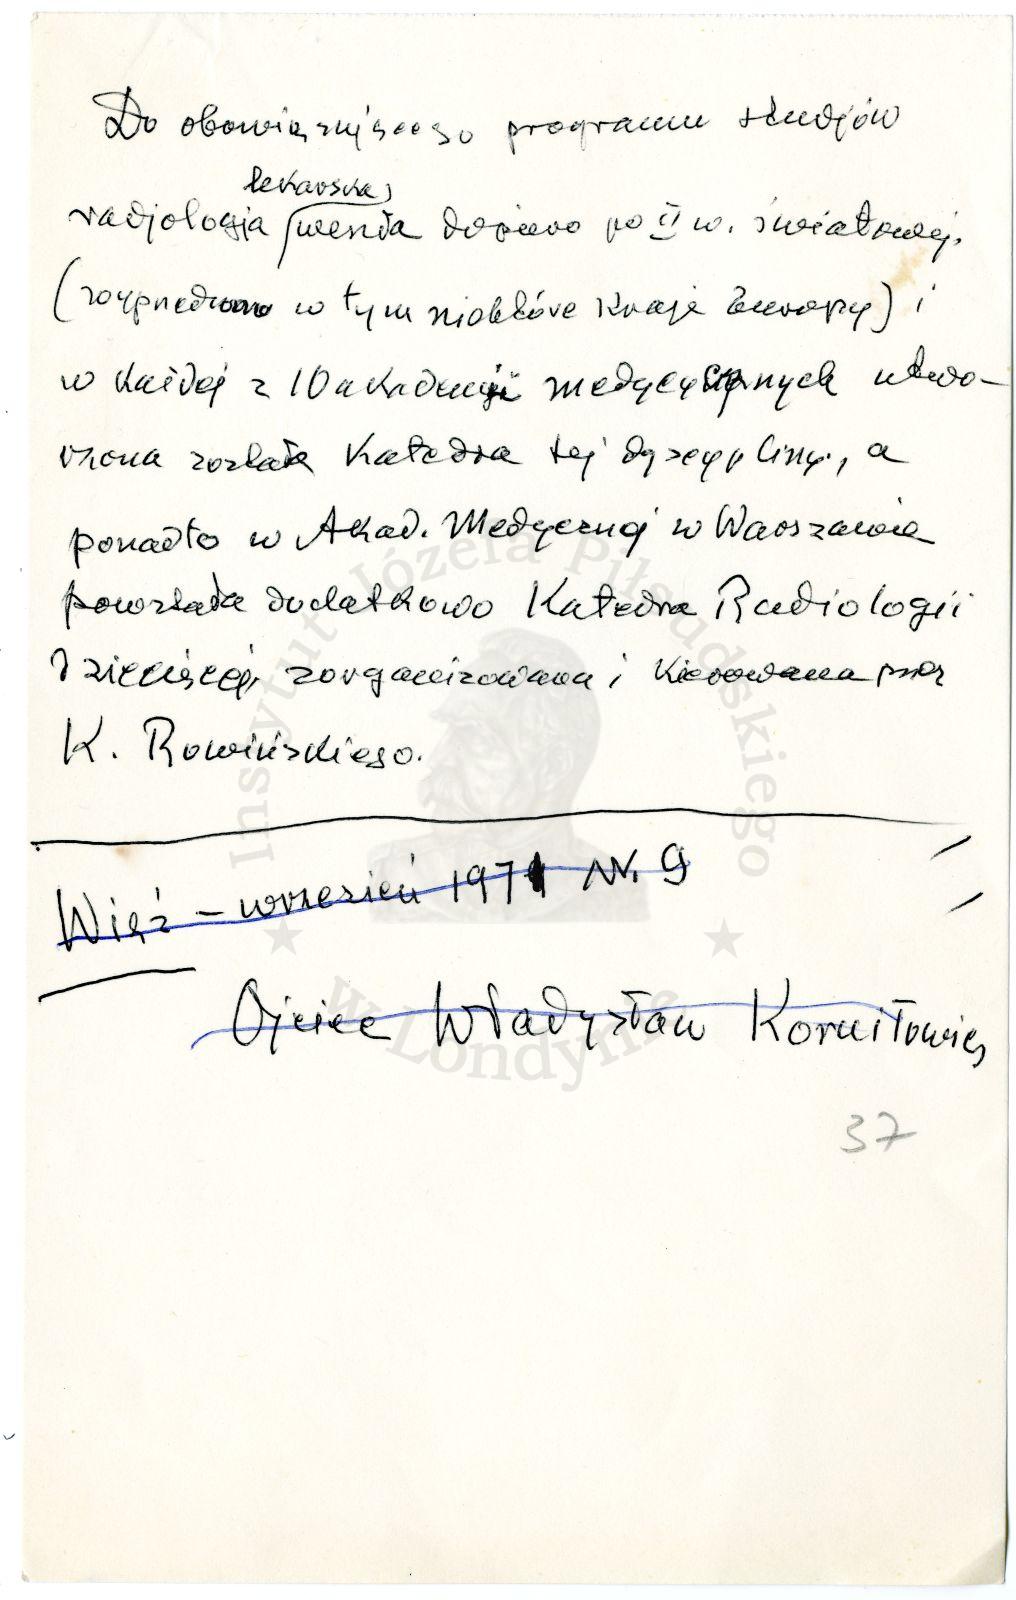 Do obowiązującego programu studjów
lekarska
radjologja weszła dopiero po II w. światowej.
(wyprzedzono w tym niektóre kraje Europy) i
w każdej z 10 akademii medycznych utwo-
rzona została Katedra tej dyscypliny, a
ponadto w Akad. Medycznej w Warszawie
powstała dodatkowo Katedra Radiologii
Dziecięcej, zorganizowana i kierowana przez
K. Rowińskiego.
Więź – wrzesień 1971 Nr. 9
Ojciec Władysław Korniłowicz
37
Instytut Józefa Piłsudskiego
w Londynie